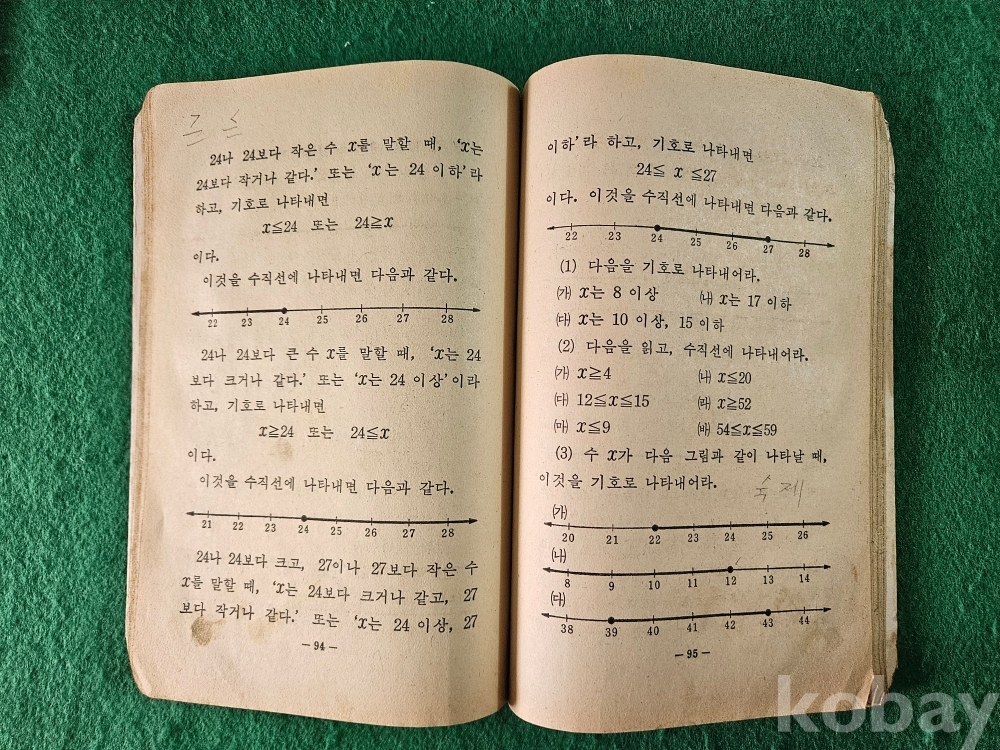 24나 24보다 작은 수 x를 말할 때, ‘x는
24보다 작거나 같다.’ 또는 ‘x는 24 이하’라
하고, 기호로 나타내면
x≦24 또는 24≧x
이다.
이것을 수직선에 나타내면 다음과 같다.
22 23 24 25 26 27 28
24나 24보다 큰 수 x를 말할 때, ‘x는 24
보다 크거나 같다.’ 또는 ‘x는 24 이상’이라
하고, 기호로 나타내면
x≧24 또는 24≦x
이다.
이것을 수직선에 나타내면 다음과 같다.
21 22 23 24 25 26 27 28
24나 24보다 크고, 27이나 27보다 작은 수
x를 말할 때, ‘x는 24보다 크거나 같고, 27
보다 작거나 같다.’ 또는 ‘x는 24 이상, 27
—94—
이하’라 하고, 기호로 나타내면
24≦ x ≦27
이다. 이것을 수직선에 나타내면 다음과 같다.
22 23 24 25 26 27 28
(1) 다음을 기호로 나타내어라.
㈎ x는 8 이상 ㈏ x는 17 이하
㈐ x는 10 이상, 15 이하
(2) 다음을 읽고, 수직선에 나타내어라.
㈎ x≧4 ㈏ x≦20
㈐ 12≦x≦15 ㈑ x≧52
㈒ x≦9 ㈓ 54≦x≦59
(3) 수 x가 다음 그림과 같이 나타날 때,
이것을 기호로 나타내어라. 숙제
㈎
20 21 22 23 24 25 26
㈏
8 9 10 11 12 13 14
㈐
38 39 40 41 42 43 44
—95—
kobay